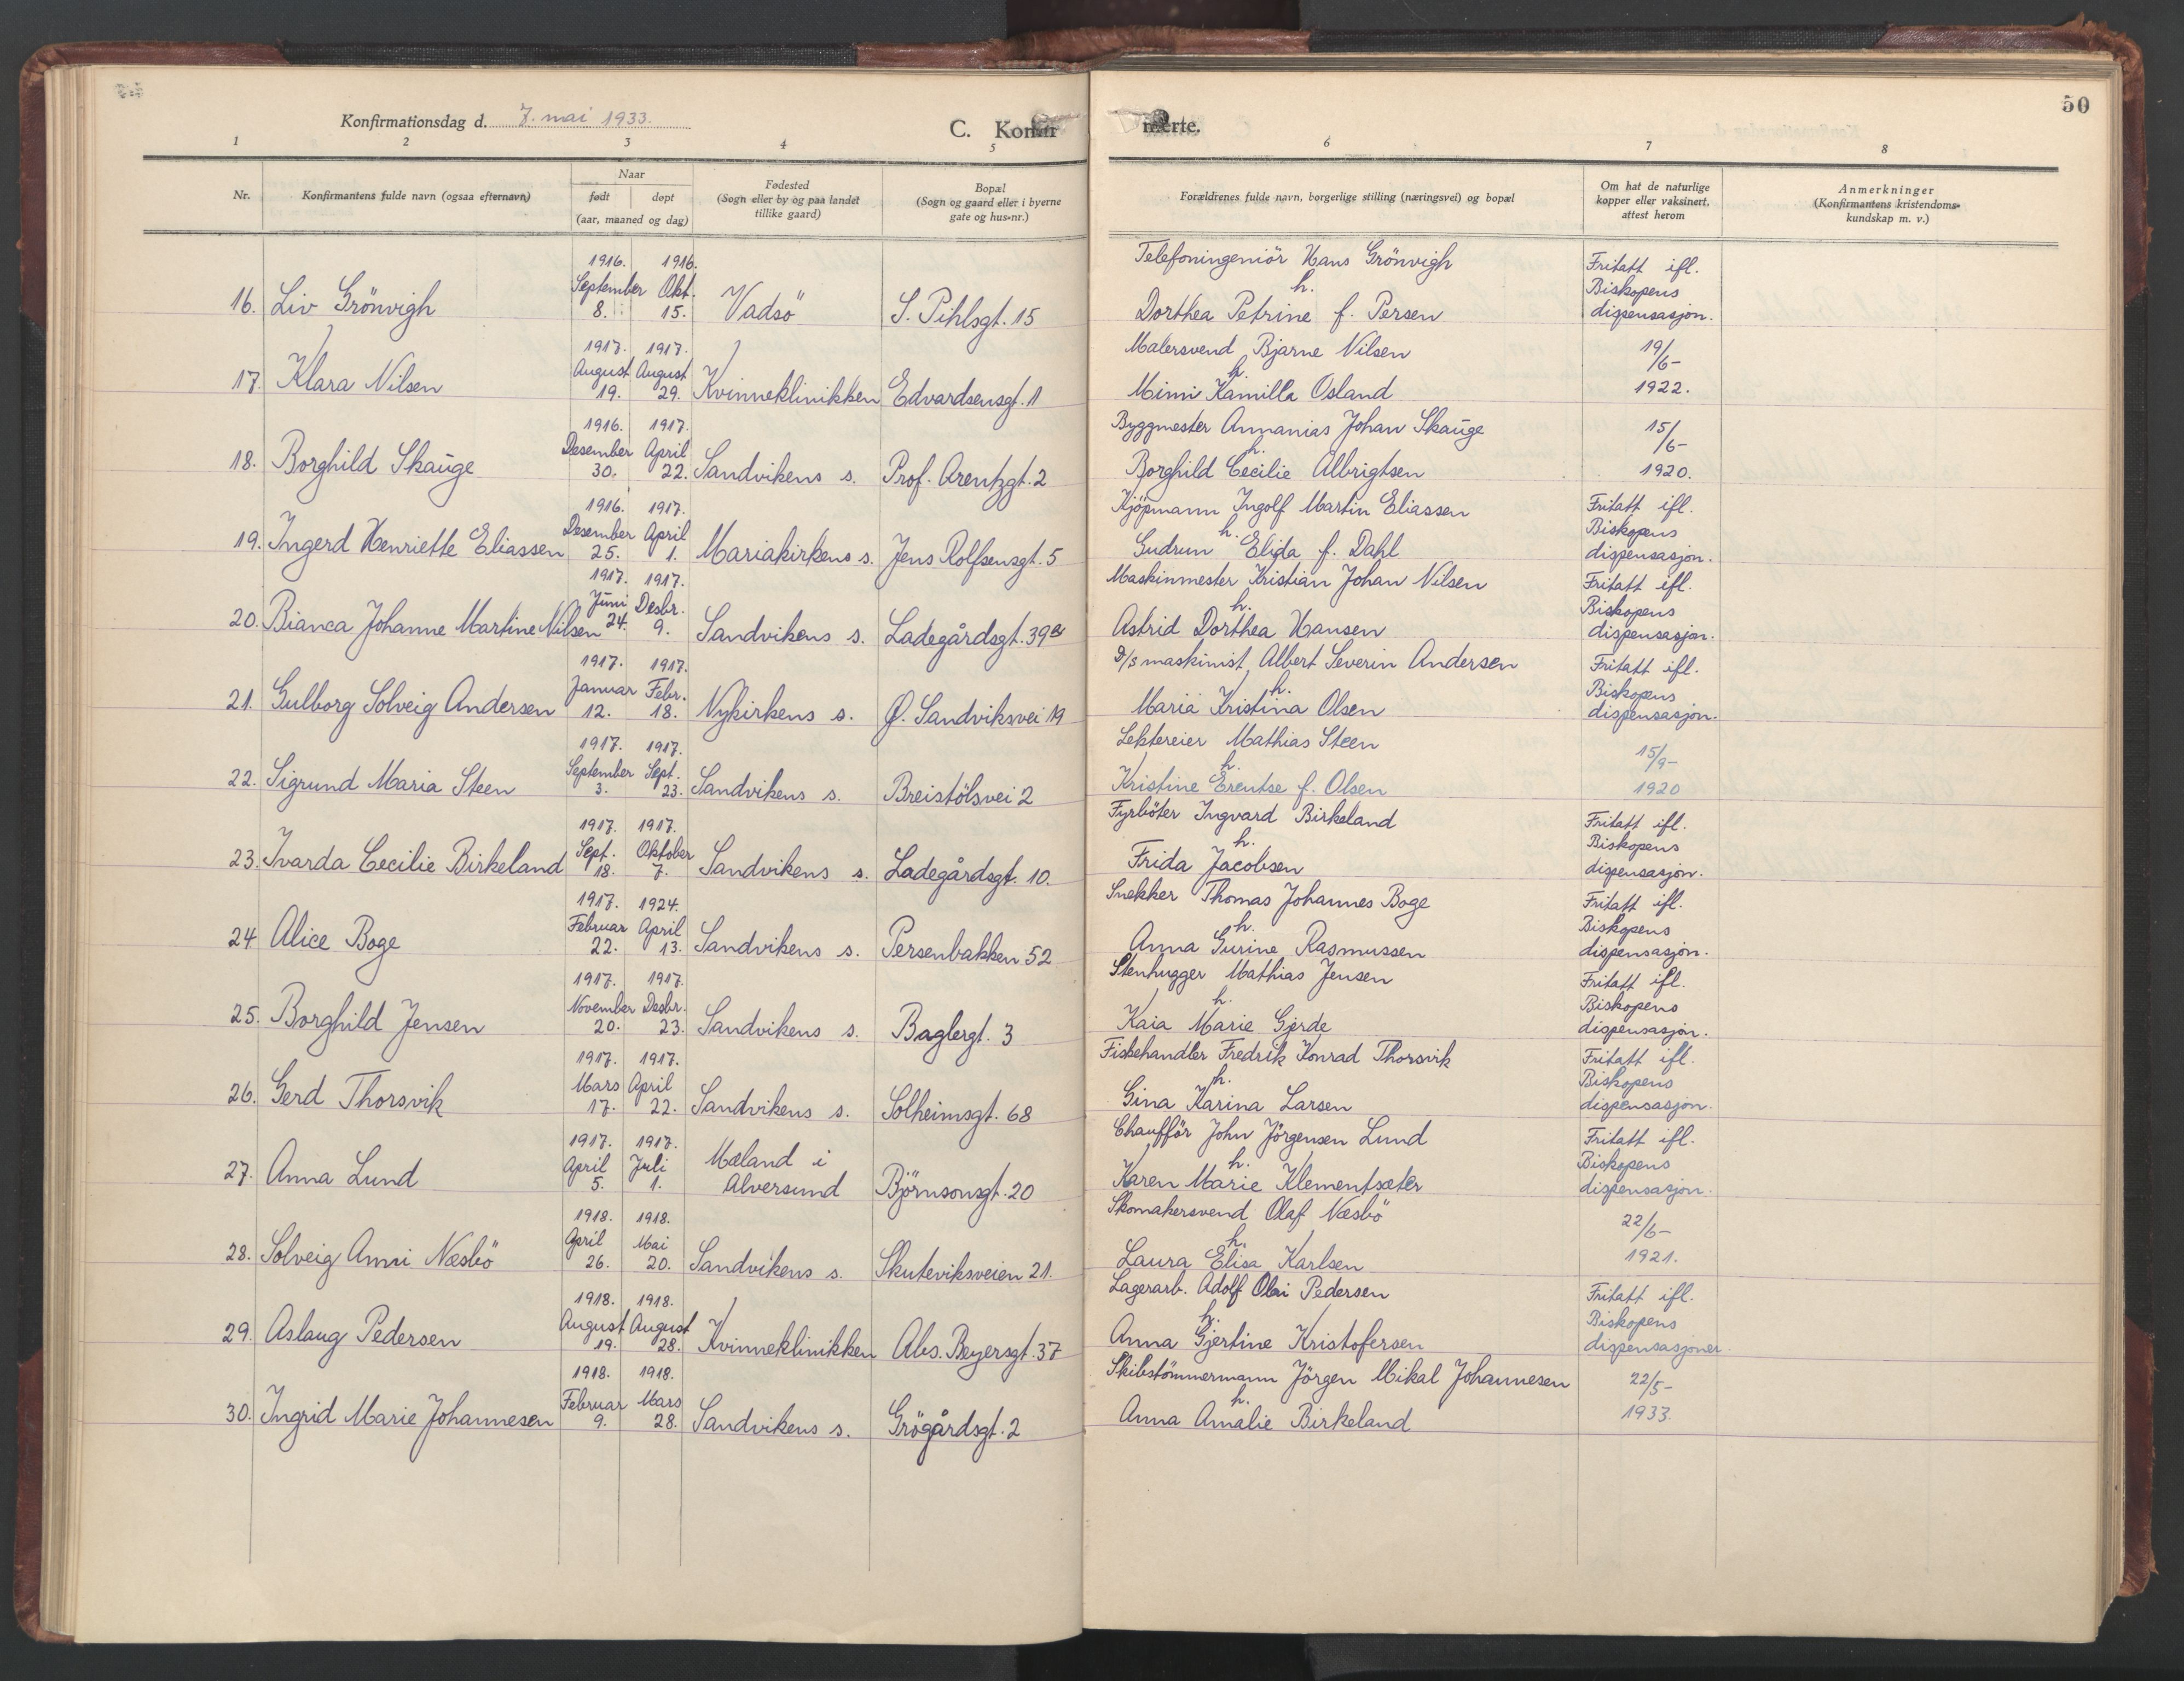 50
Konfirmationsdag d. 7. mai 1933.
C. Konfir
merte.
1 2 3 4 5 6 7 8
Nr. Konfirmantens fulde navn (ogsaa efternavn) Naar født døpt (aar, maaned og dag) Fødested (Sogn eller by og paa landet tillike gaard) Bopæl (Sogn og gaard eller i byerne gate og hus-nr.) Forældrenes fulde navn, borgerlige stilling (næringsvei) og bopæl Om hat de naturlige kopper eller vaksinert, attest herom Anmerkninger (Konfirmantens kristendoms-kundskap m. v.)
16. Liv Grönvigh 1916. September 8. 1916. Okt. 15. Vadsö S. Pihlsgt. 15 Telefoningeniör Hans Grönvigh h. Dorthea Petrine f. Persen Fritatt ifl. Biskopens dispensasjon.
17. Klara Nilsen 1917. August 19. 1917. August 29. Kvinneklinikken Edvardsensgt. 11 Malersvend Bjarne Nilsen h. Mimi Kamilla Osland 19/6- 1922.
18. Borghild Skauge 1916. Desember 30. 1917. April 22. Sandvikens s. Prof. Arentzgt. 2 Byggmester Annanias Johan Skauge h. Borghild Cecilie Albrigtsen 15/6- 1920.
19. Ingerd Henriette Eliassen 1916. Desember 25. 1917. April 1. Mariakirkens s. Jens Rolfsensgt. 5 Kjöpmann Ingolf Martin Eliassen h. Gudrun Elida f. Dahl Fritatt ifl. Biskopens dispensasjon.
20. Bianca Johanne Martine Nilsen 1917. Juni 24. 1917. Desbr. 9. Sandvikens s. Ladegårdsgt. 39 B Maskinmester Kristian Johan Nilsen h. Astrid Dorthea Hansen Fritatt ifl. Biskopens dispensasjon.
21. Gulborg Solveig Andersen 1917. Januar 12. 1917. Febr. 18. Nykirkens s. Ø. Sandviksvei 19 D/s maskinist Albert Severin Andersen h. Maria Kristina Olsen Fritatt ifl. Biskopens dispensasjon.
22. Sigrund Maria Steen 1917. September 3. 1917. Sept. 23. Sandvikens s. Breistölsvei 2 Lektereier Mathias Steen h. Kristine Erentse f. Olsen 15/9- 1920
23. Ivarda Cecilie Birkeland 1917. Sept. 18. 1917. Oktober 7. Sandvikens s. Ladegårdsgt. 10. Fyrböter Ingvard Birkeland h. Frida Jacobsen Fritatt ifl. Biskopens dispensasjon.
24 Alice Boge 1917. Februar 22. 1924. April 13. Sandvikens s. Persenbakken 52 Snekker Thomas Johannes Boge h. Anna Gurine Rasmussen Fritatt ifl. Biskopens dispensasjon.
25. Borghild Jensen 1917. November 20. 1917. Desbr. 23. Sandvikens s. Baglergt. 3 Stenhugger Mathias Jensen h. Kaia Marie Gjerde Fritatt ifl. Biskopens dispensasjon.
26. Gerd Thorsvik 1917. Mars 17. 1917. April 22. Sandvikens s. Solheimsgt. 68 Fiskehandler Fredrik Konrad Thorsvik h. Gina Karina Larsen Fritatt ifl. Biskopens dispensasjon.
27. Anna Lund 1917. April 5. 1917. Juli 1. Mæland i Alversund Björnsonsgt. 20 Chaufför John Jörgensen Lund h. Karen Marie Klementsæter Fritatt ifl. Biskopens dispensasjon.
28. Solveig Anni Næsbö 1918. April 26. 1918. Mai 20. Sandvikens s. Skuteviksveien 21. Skomakersvend Olaf Næsbö h. Laura Elisa Karlsen 22/6- 1921.
29. Aslaug Pedersen 1918. August 19. 1918. August 28. Kvinneklinikken Abs. Beyersgt. 37 Lagerarb. Adolf Olai Pedersen h. Anna Gjertine Kristofersen Fritatt ifl. Biskopens dispensasjoner.
30. Ingrid Marie Johannesen 1918. Februar 9. 1918. Mars 28. Sandvikens s. Grögårdsgt. 2 Skibstömmermann Jörgen Mikal Johannesen h. Anna Amalie Birkeland 22/5- 1933.